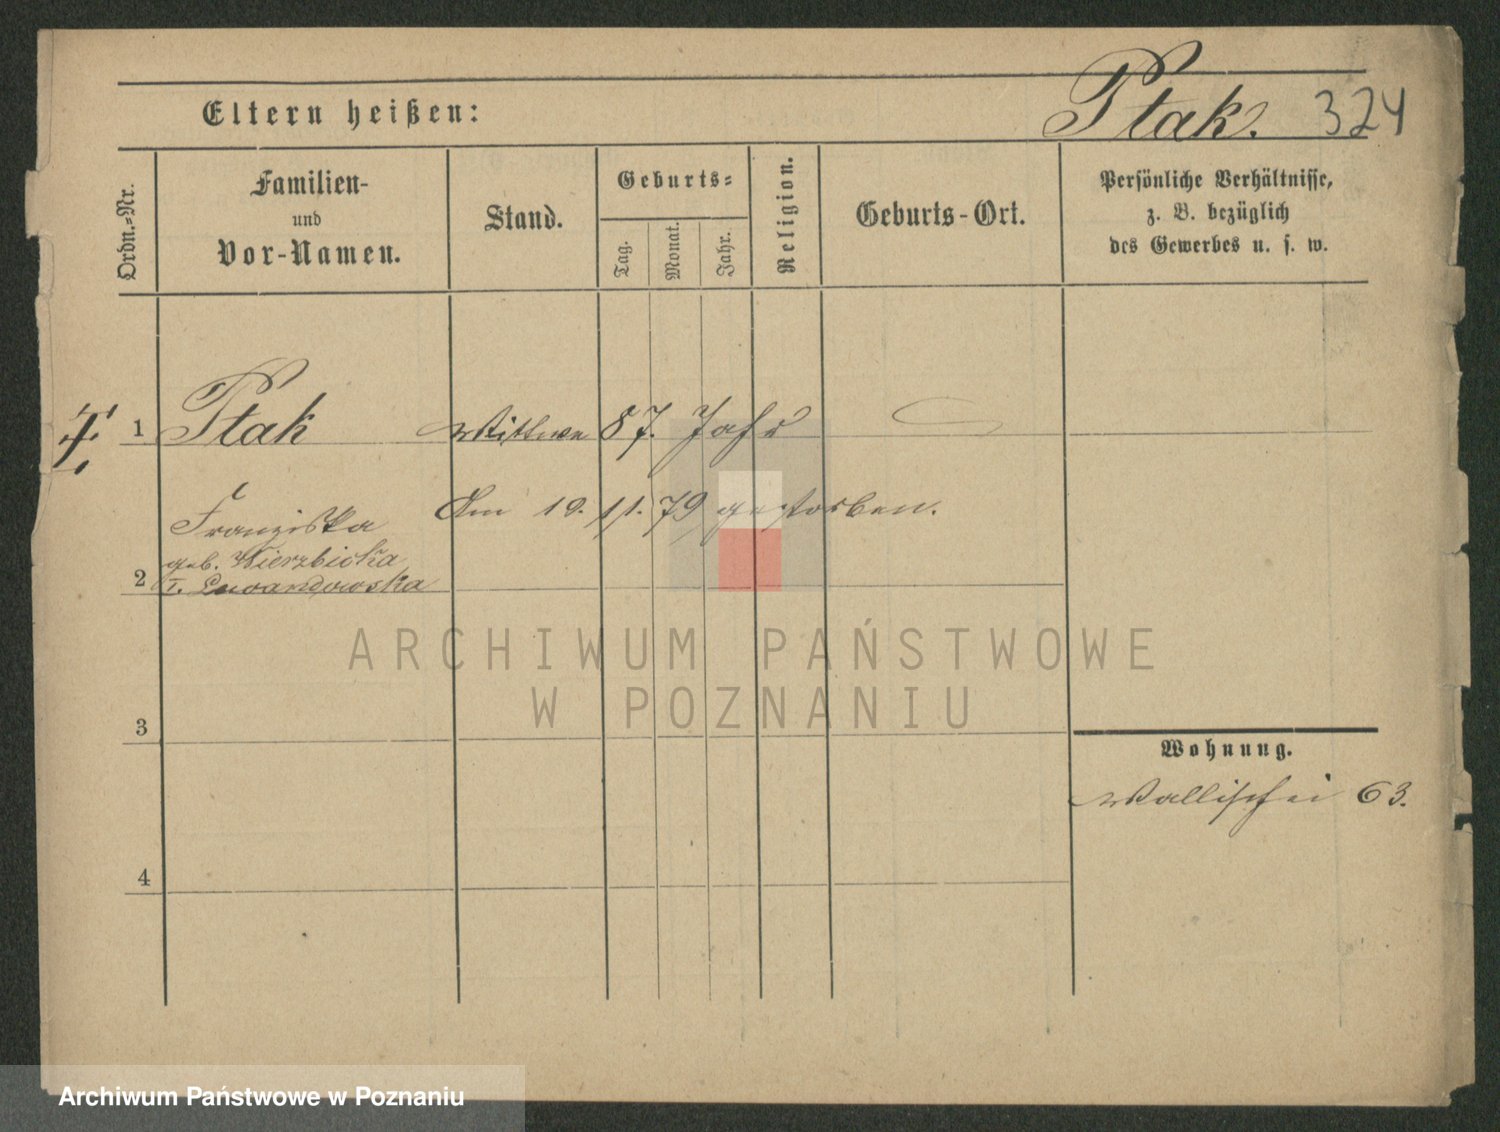 Ptak. 324
Eltern heißen:
Ordn.=Nr.
Familien-
und
Vor-Namen.
Stand.
Geburts=
Tag.
Monat.
Jahr.
Religion.
Geburts-Ort.
Persönliche Verhältnisse,
z. B. bezüglich
des Gewerbes u. s. w.
1 Ptak Wittwe 87. Jahr
Am 19. 11. 79 gestorben.
Franziska
geb. Wierzbicka
2 I.
ARCHIWUM PAŃSTWOWE
W POZNANIU
3
Wohnung.
Wallischei 63.
4
Archiwum Państwowe w Poznaniu